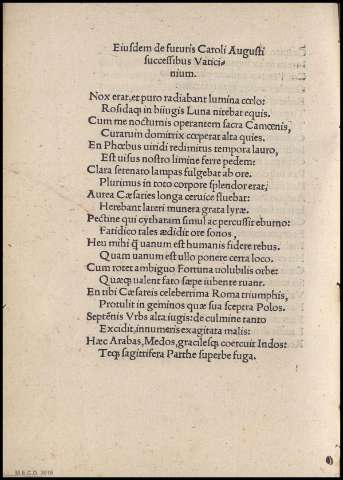 Eiusdem de futuris Caroli Augusti
successibus Vatici-
nium.
Nox erat, et puro radiabant lumina cœlo:
Rosidaq; in biiugis Luna nitebat equis.
Cum me nocturnis operantem sacra Camœnis,
Curarum domitrix cœperat alta quies.
En Phœbus uiridi redimitus tempora lauro,
Est uisus nostro limine ferre pedem:
Clara serenato lampas fulgebat ab ore.
Plurimus in toto corpore splendor erat,
Aurea Cæsaries longa ceruice fluebat:
Herebant lateri munera grata lyræ.
Pectine qui cytharam simul ac percussit eburno:
Fatidico tales ædidit ore sonos,
Heu mihi q̃ uanum est humanis fidere rebus.
Quam uanum est ullo ponere certa loco.
Cum rotet ambiguo Fortuna uolubilis orbe:
Quæq; ualent fato sæpe iubente ruant.
En tibi Cæsareis celeberrima Roma triumphis,
Protulit in geminos quæ sua sceptra Polos.
Septẽnis Vrbs alta iugis: de culmine tanto
Excidit, innumeris exagitata malis:
Hæc Arabas, Medos, gracilesq; coercuit Indos:
Teq; sagittifera Parthe superbe fuga.
M.E.C.D. 2016